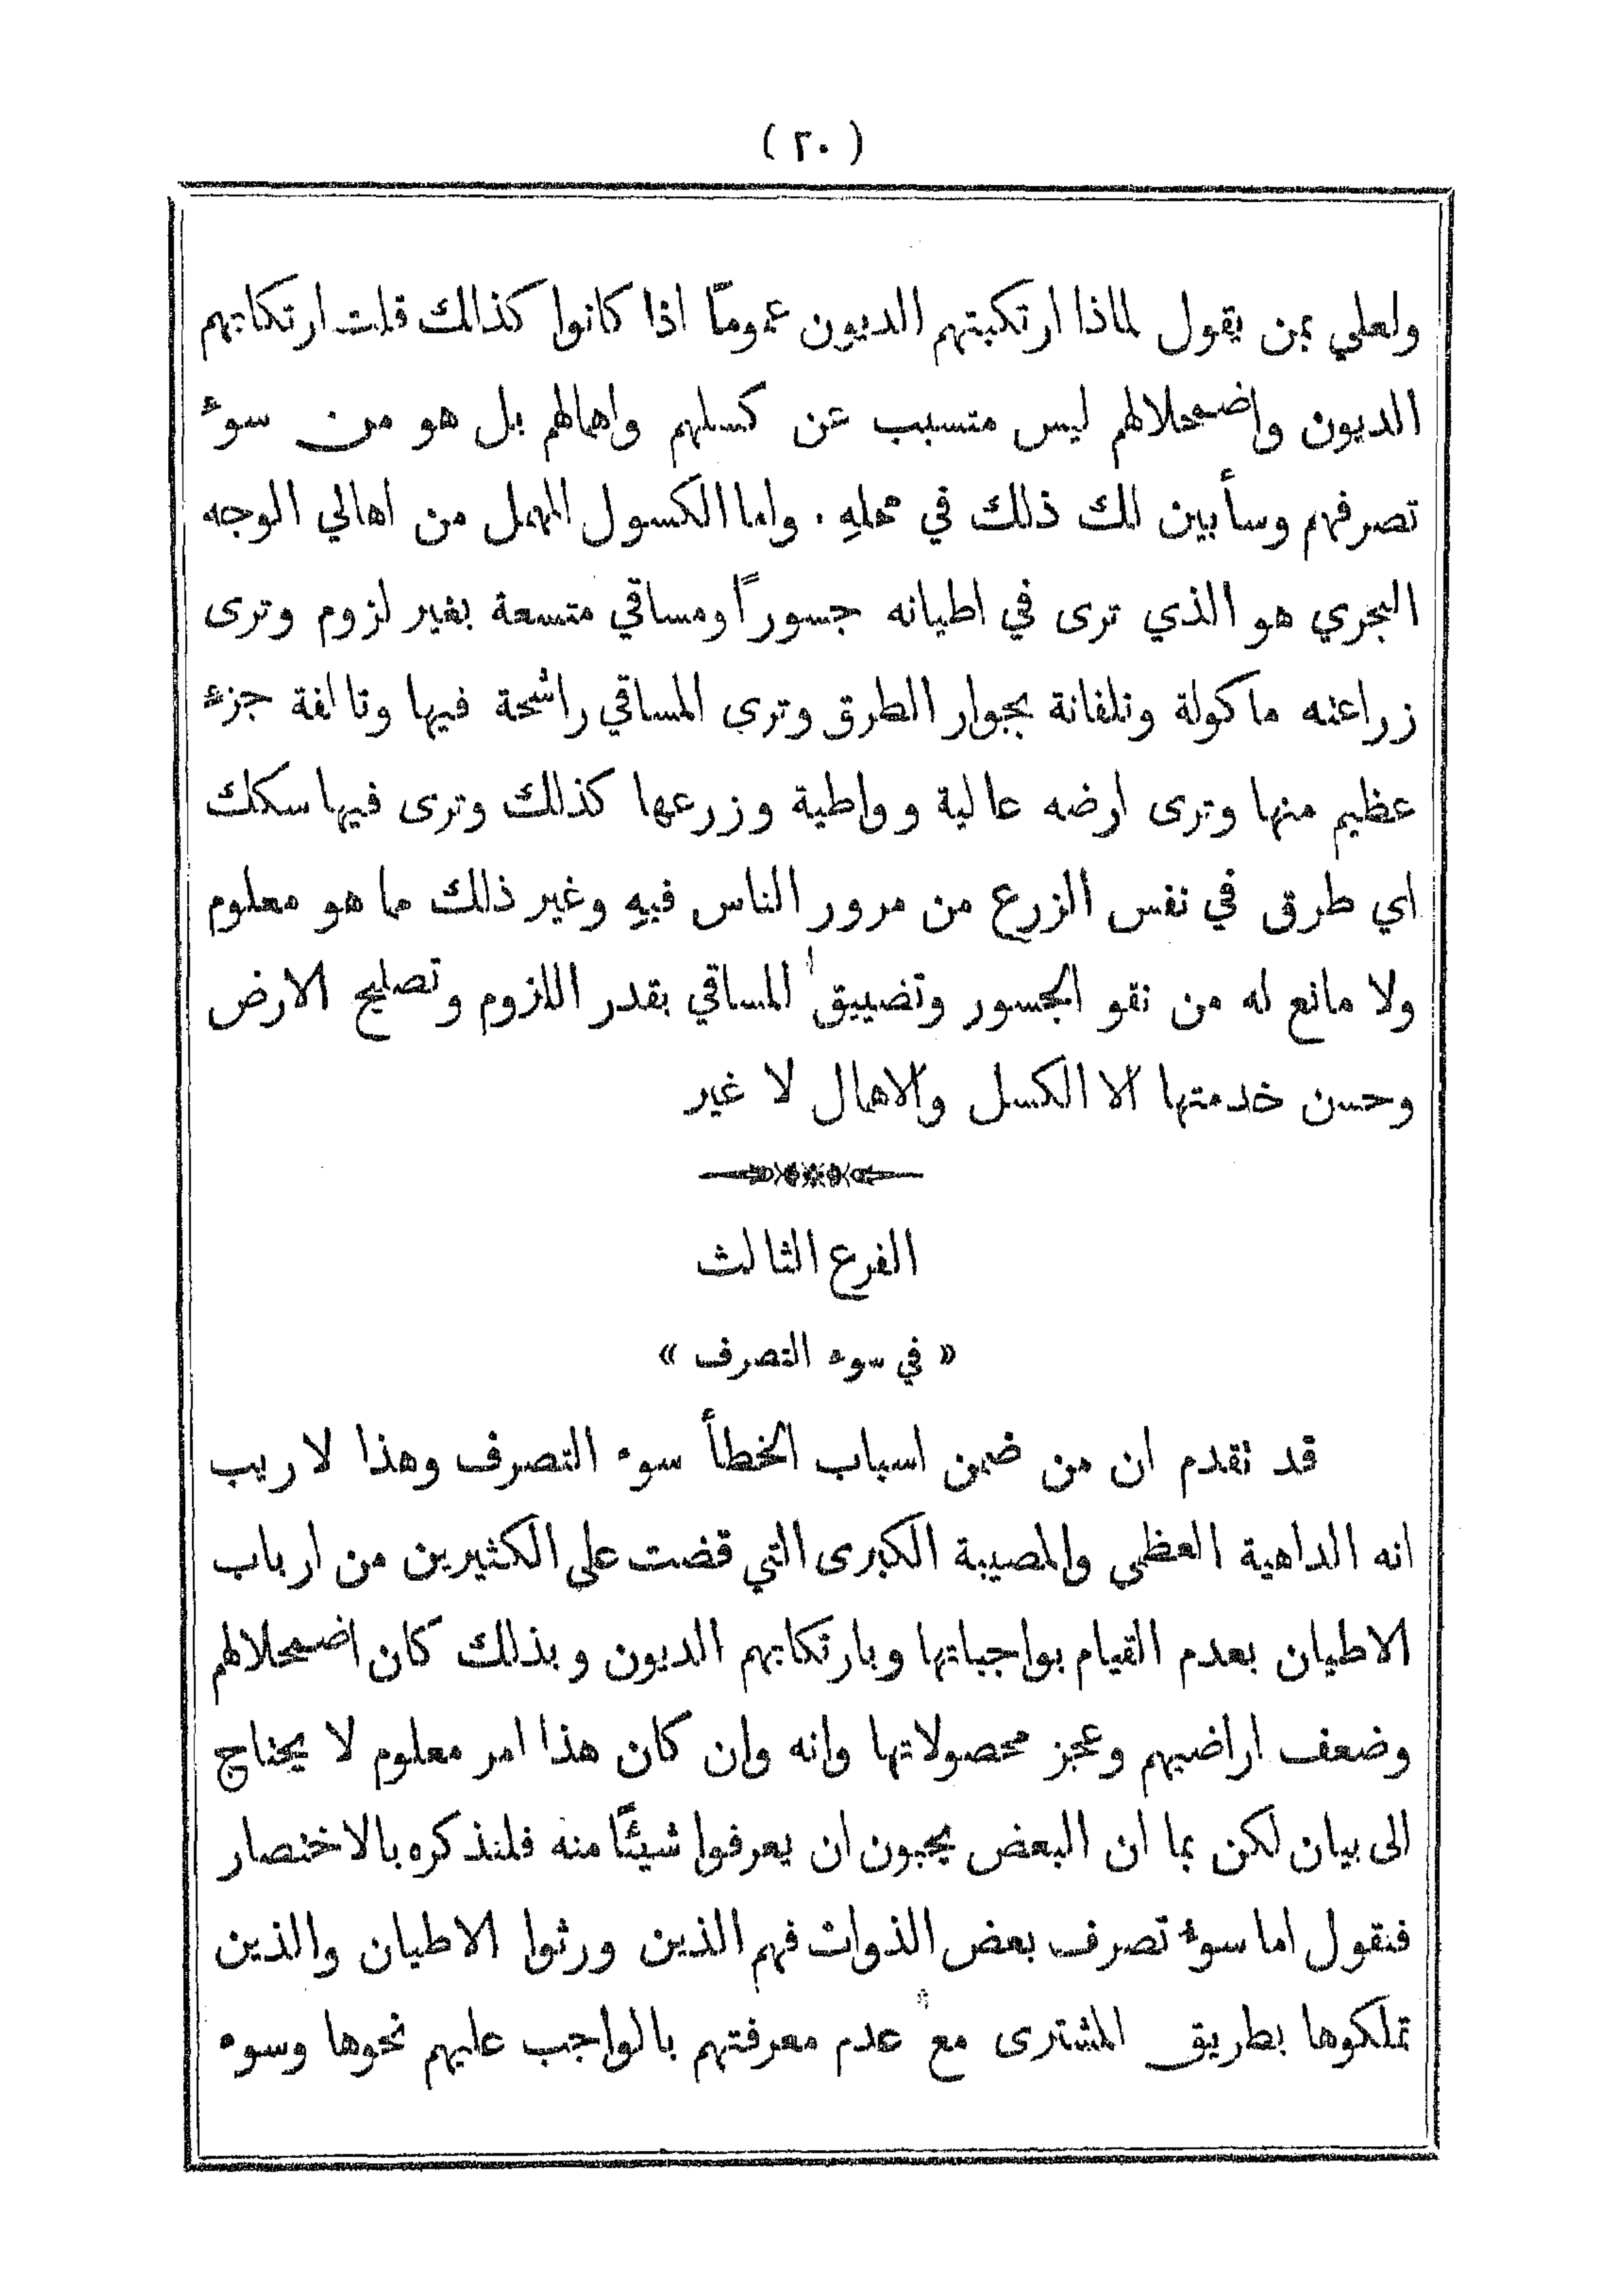 ( ٢٠ )
ولعلي بمن يقول لماذا ارتكبتهم الديون عموماً اذا كانوا كذالك قلت ارتكابهم
الديون واضمحلالهم ليس متسبب عن كسلهم واهمالهم بل هو من سوء
تصرفهم وسأبين لك ذلك في محلهِ . واما الكسول المهمل من اهالي الوجه
البحري هو الذي ترى في اطيانه جسوراً ومساقي متسعة بغير لزوم وترى
زراعته ماكولة وتلفانة بجوار الطرق وترى المساقي راشحة فيها وتالفة جزء
عظيم منها وترى ارضه عالية وواطية وزرعها كذلك وترى فيها سكك
اي طرق في نفس الزرع من مرور الناس فيهِ وغير ذلك مما هو معلوم
ولا مانع له من نقو الجسور وتضييق المساقي بقدر اللزوم وتصليح الارض
وحسن خدمتها الا الكسل والاهمال لا غير
الفرع الثالث
« في سوء التصرف »
قد تقدم ان من ضمن اسباب الخطأ سوء التصرف وهذا لا ريب
انه الداهية العظمى والمصيبة الكبرى التي قضت على الكثيرين من ارباب
الاطيان بعدم القيام بواجباتها وبارتكابهم الديون وبذلك كان اضمحلالهم
وضعف اراضيهم وعجز محصولاتها وانه وان كان هذا امر معلوم لا يحتاج
الى بيان لكن بما ان البعض يحبون ان يعرفوا شيئًا منه فلنذكره بالاختصار
فنقول اما سوء تصرف بعض الذوات فهم الذين ورثوا الاطيان والذين
تملكوها بطريق المشترى مع عدم معرفتهم بالواجب عليهم نحوها وسوء